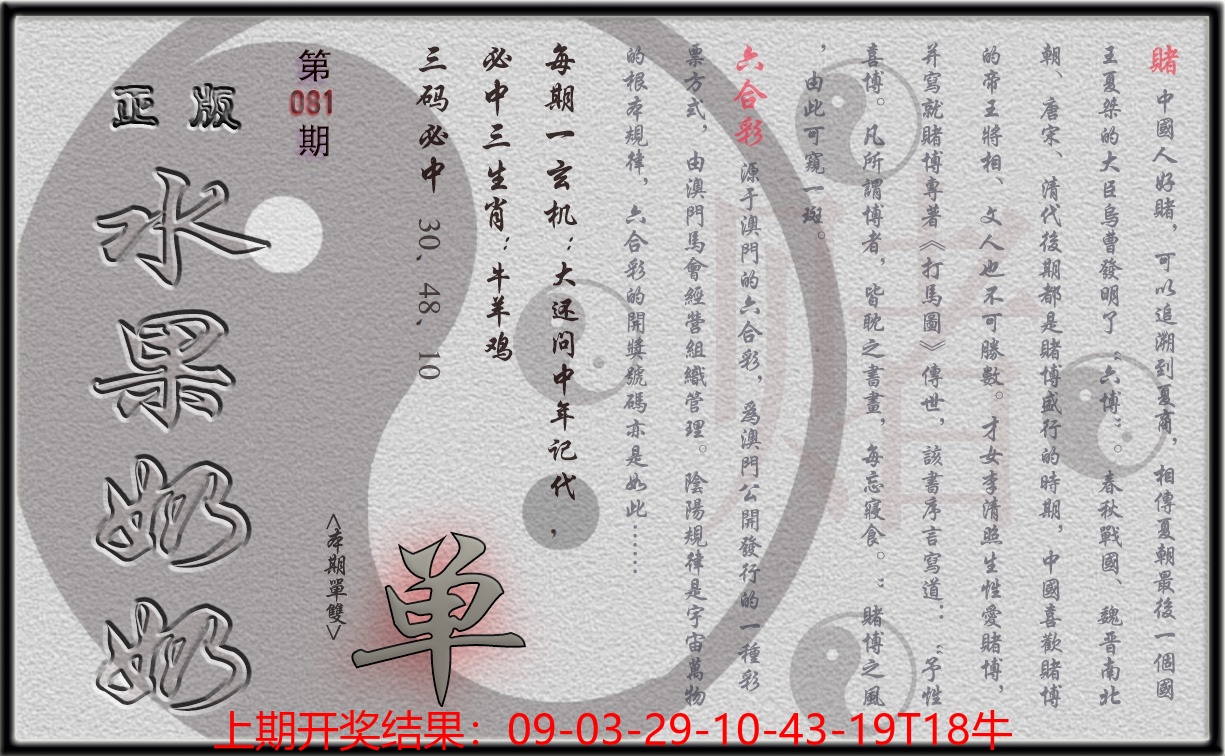 賭 中國人好賭，可以追溯到夏商，相傳夏朝最後一個國
王夏桀的大臣烏曹發明了“六博”。春秋戰國、魏晋南北
朝、唐宋、清代後期都是賭博盛行的時期，中國喜歡賭博
的帝王將相、文人也不可勝數。才女李清照生性愛賭博，
并寫就賭博專著《打馬圖》傳世，該書序言寫道：“予性
喜博。凡所謂博者，皆耽之書畫，每忘寢食。”賭博之風
，由此可窺一斑。
六合彩 源于澳門的六合彩，爲澳門公開發行的一種彩
票方式，由澳門馬會經營組織管理。陰陽規律是宇宙萬物
的根本規律，六合彩的開獎號碼亦是如此……
每期一玄机：大还问中年记代，
必中三生肖：牛羊鸡
三码必中 30、48、10
第
081
期
<本期單雙>
单
正版
水果奶奶
賭
上期开奖结果：09-03-29-10-43-19T18牛